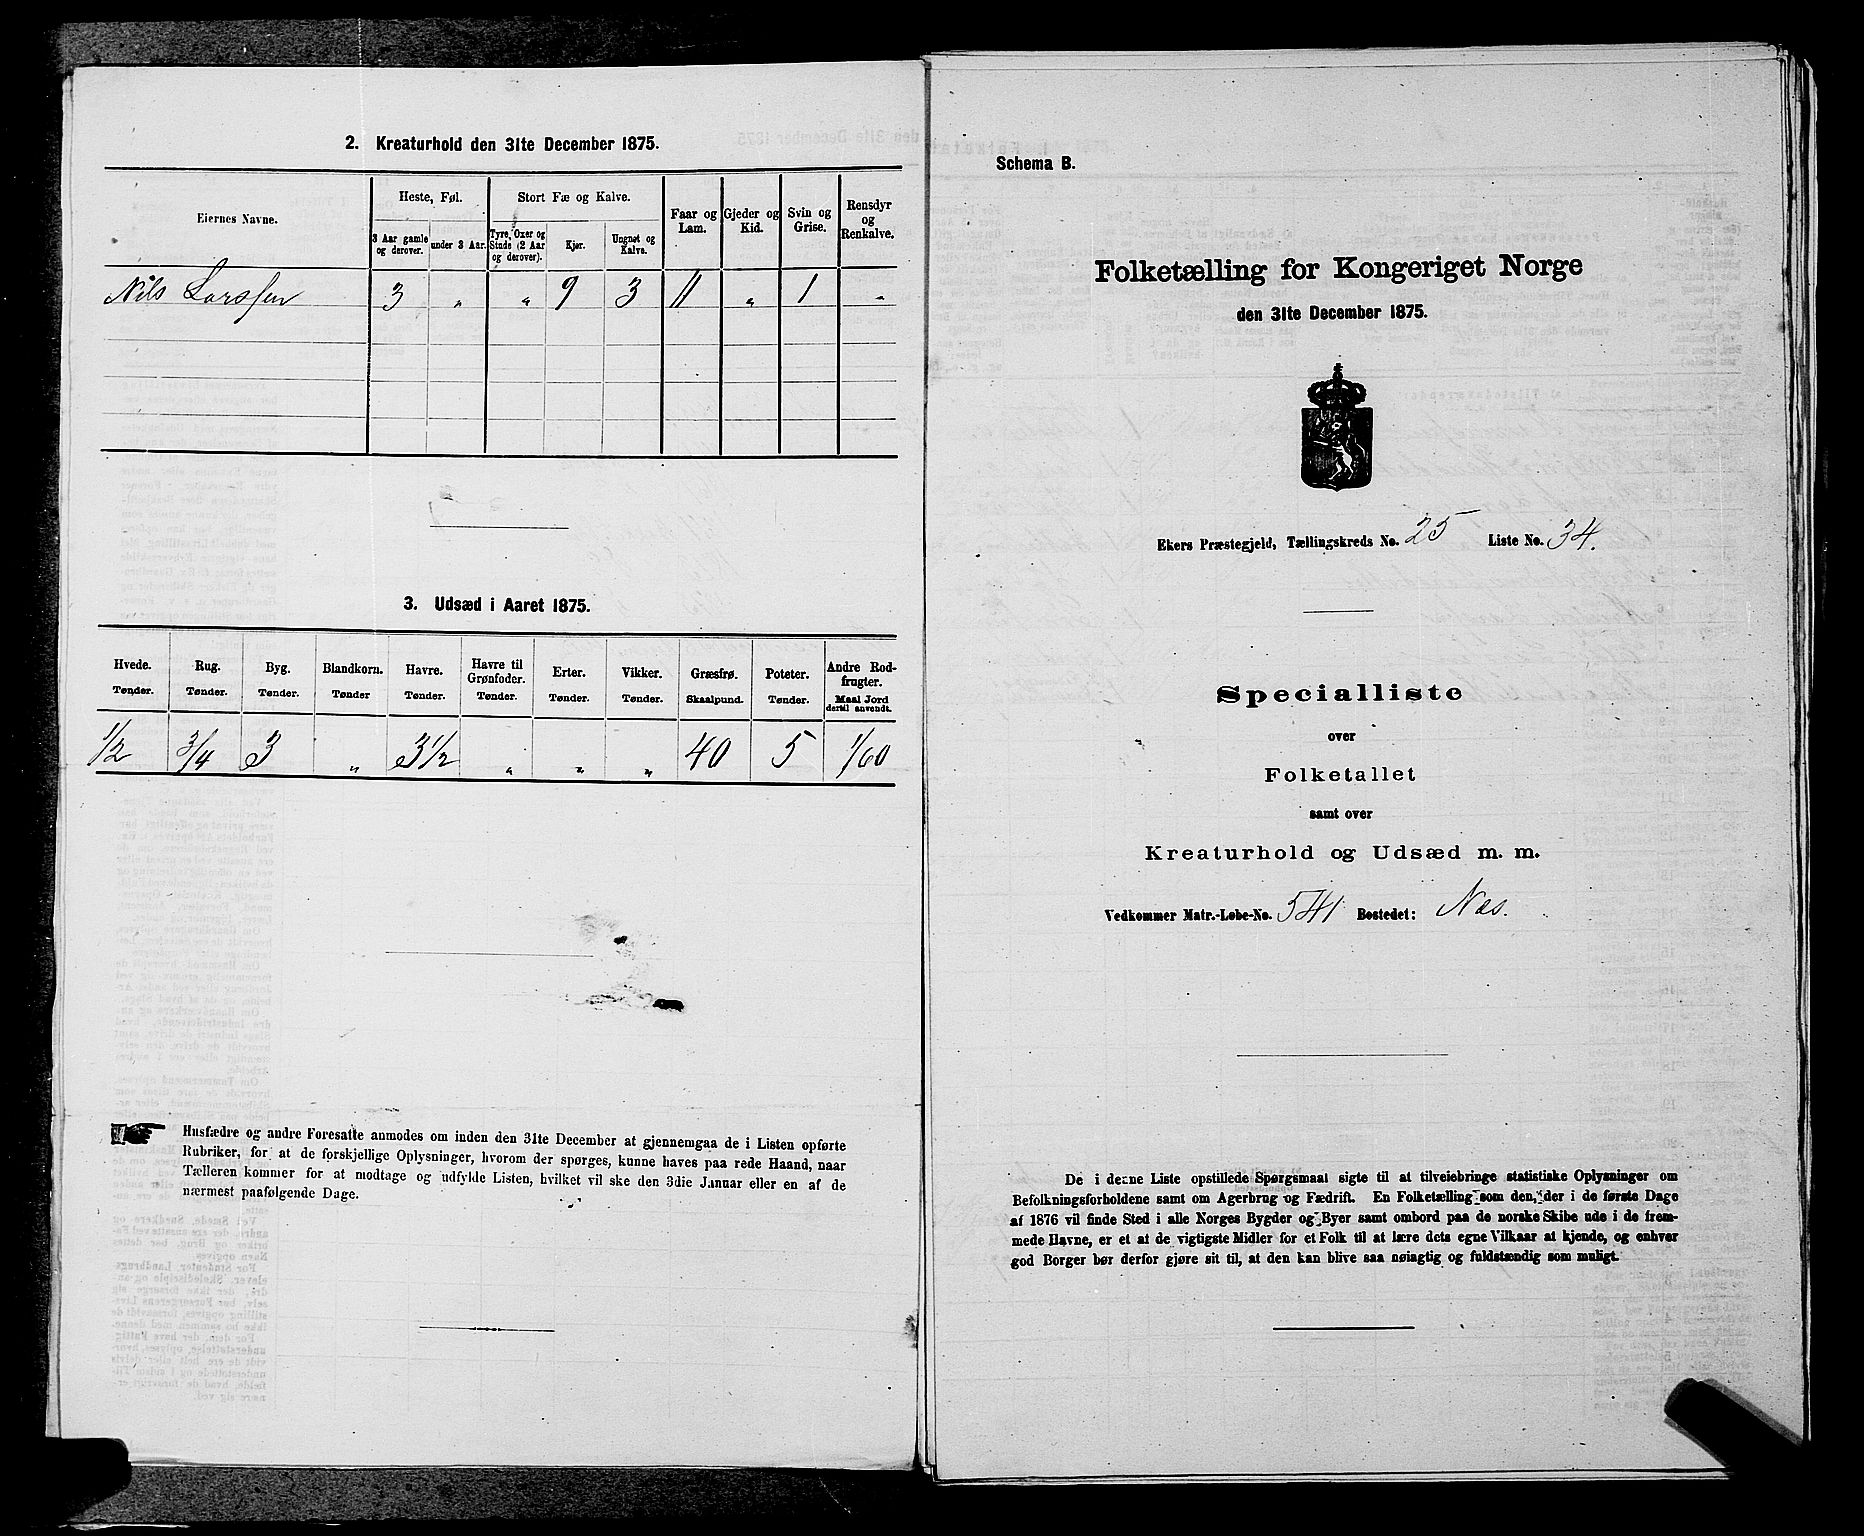 2. Kreaturhold den 31te December 1875.
Eiernes Navne.
Heste, Føl.
3 Aar gamle og derover.
under 3 Aar.
Stort Fæ og Kalve.
Tyre, Oxer og Stude (2 Aar og derover).
Kjør.
Ungnøt og Kalve.
Faar og Lam.
Gjeder og Kid.
Svin og Grise.
Rensdyr og Renkalve.
Nils Larssen 3 " " 9 3 11 " 1 "
3. Udsæd i Aaret 1875.
Hvede. Rug. Byg. Blandkorn. Havre. Havre til Grønfoder. Erter. Vikker. Græsfrø. Poteter. Andre Rodfrugter.
Tønder. Tønder. Tønder. Tønder Tønder. Tønder. Tønder. Tønder. Skaalpund. Tønder. Maal Jord dertil anvendt.
1/2 3/4 3 " 3 1/2 " " " 40 5 1/60
Husfædre og andre Foresatte anmodes om inden den 31te December at gjennemgaa de i Listen opførte
Rubriker, for at de forskjellige Oplysninger, hvorom der spørges, kunne haves paa rede Haand, naar
Tælleren kommer for at modtage og udfylde Listen, hvilket vil ske den 3die Januar eller en af de
nærmest paafølgende Dage.
Schema B.
Folketælling for Kongeriget Norge
den 31te December 1875.
Ekers Præstegjeld, Tællingskreds No. 25 Liste No. 34.
Specialliste
over
Folketallet
samt over
Kreaturhold og Udsæd m. m.
Vedkommer Matr.-Løbe-No. 541 Bostedet: Næs.
De i denne Liste opstillede Spørgsmaal sigte til at tilveiebringe statistiske Oplysninger om
Befolkningsforholdene samt om Agerbrug og Fædrift. En Folketælling som den, der i de første Dage
af 1876 vil finde Sted i alle Norges Bygder og Byer samt ombord paa de norske Skibe ude i de frem-
mede Havne, er et af de vigtigste Midler for et Folk til at lære dets egne Vilkaar at kjende, og enhver
god Borger bør derfor gjøre sit til, at den kan blive saa nøiagtig og fuldstændig som muligt.